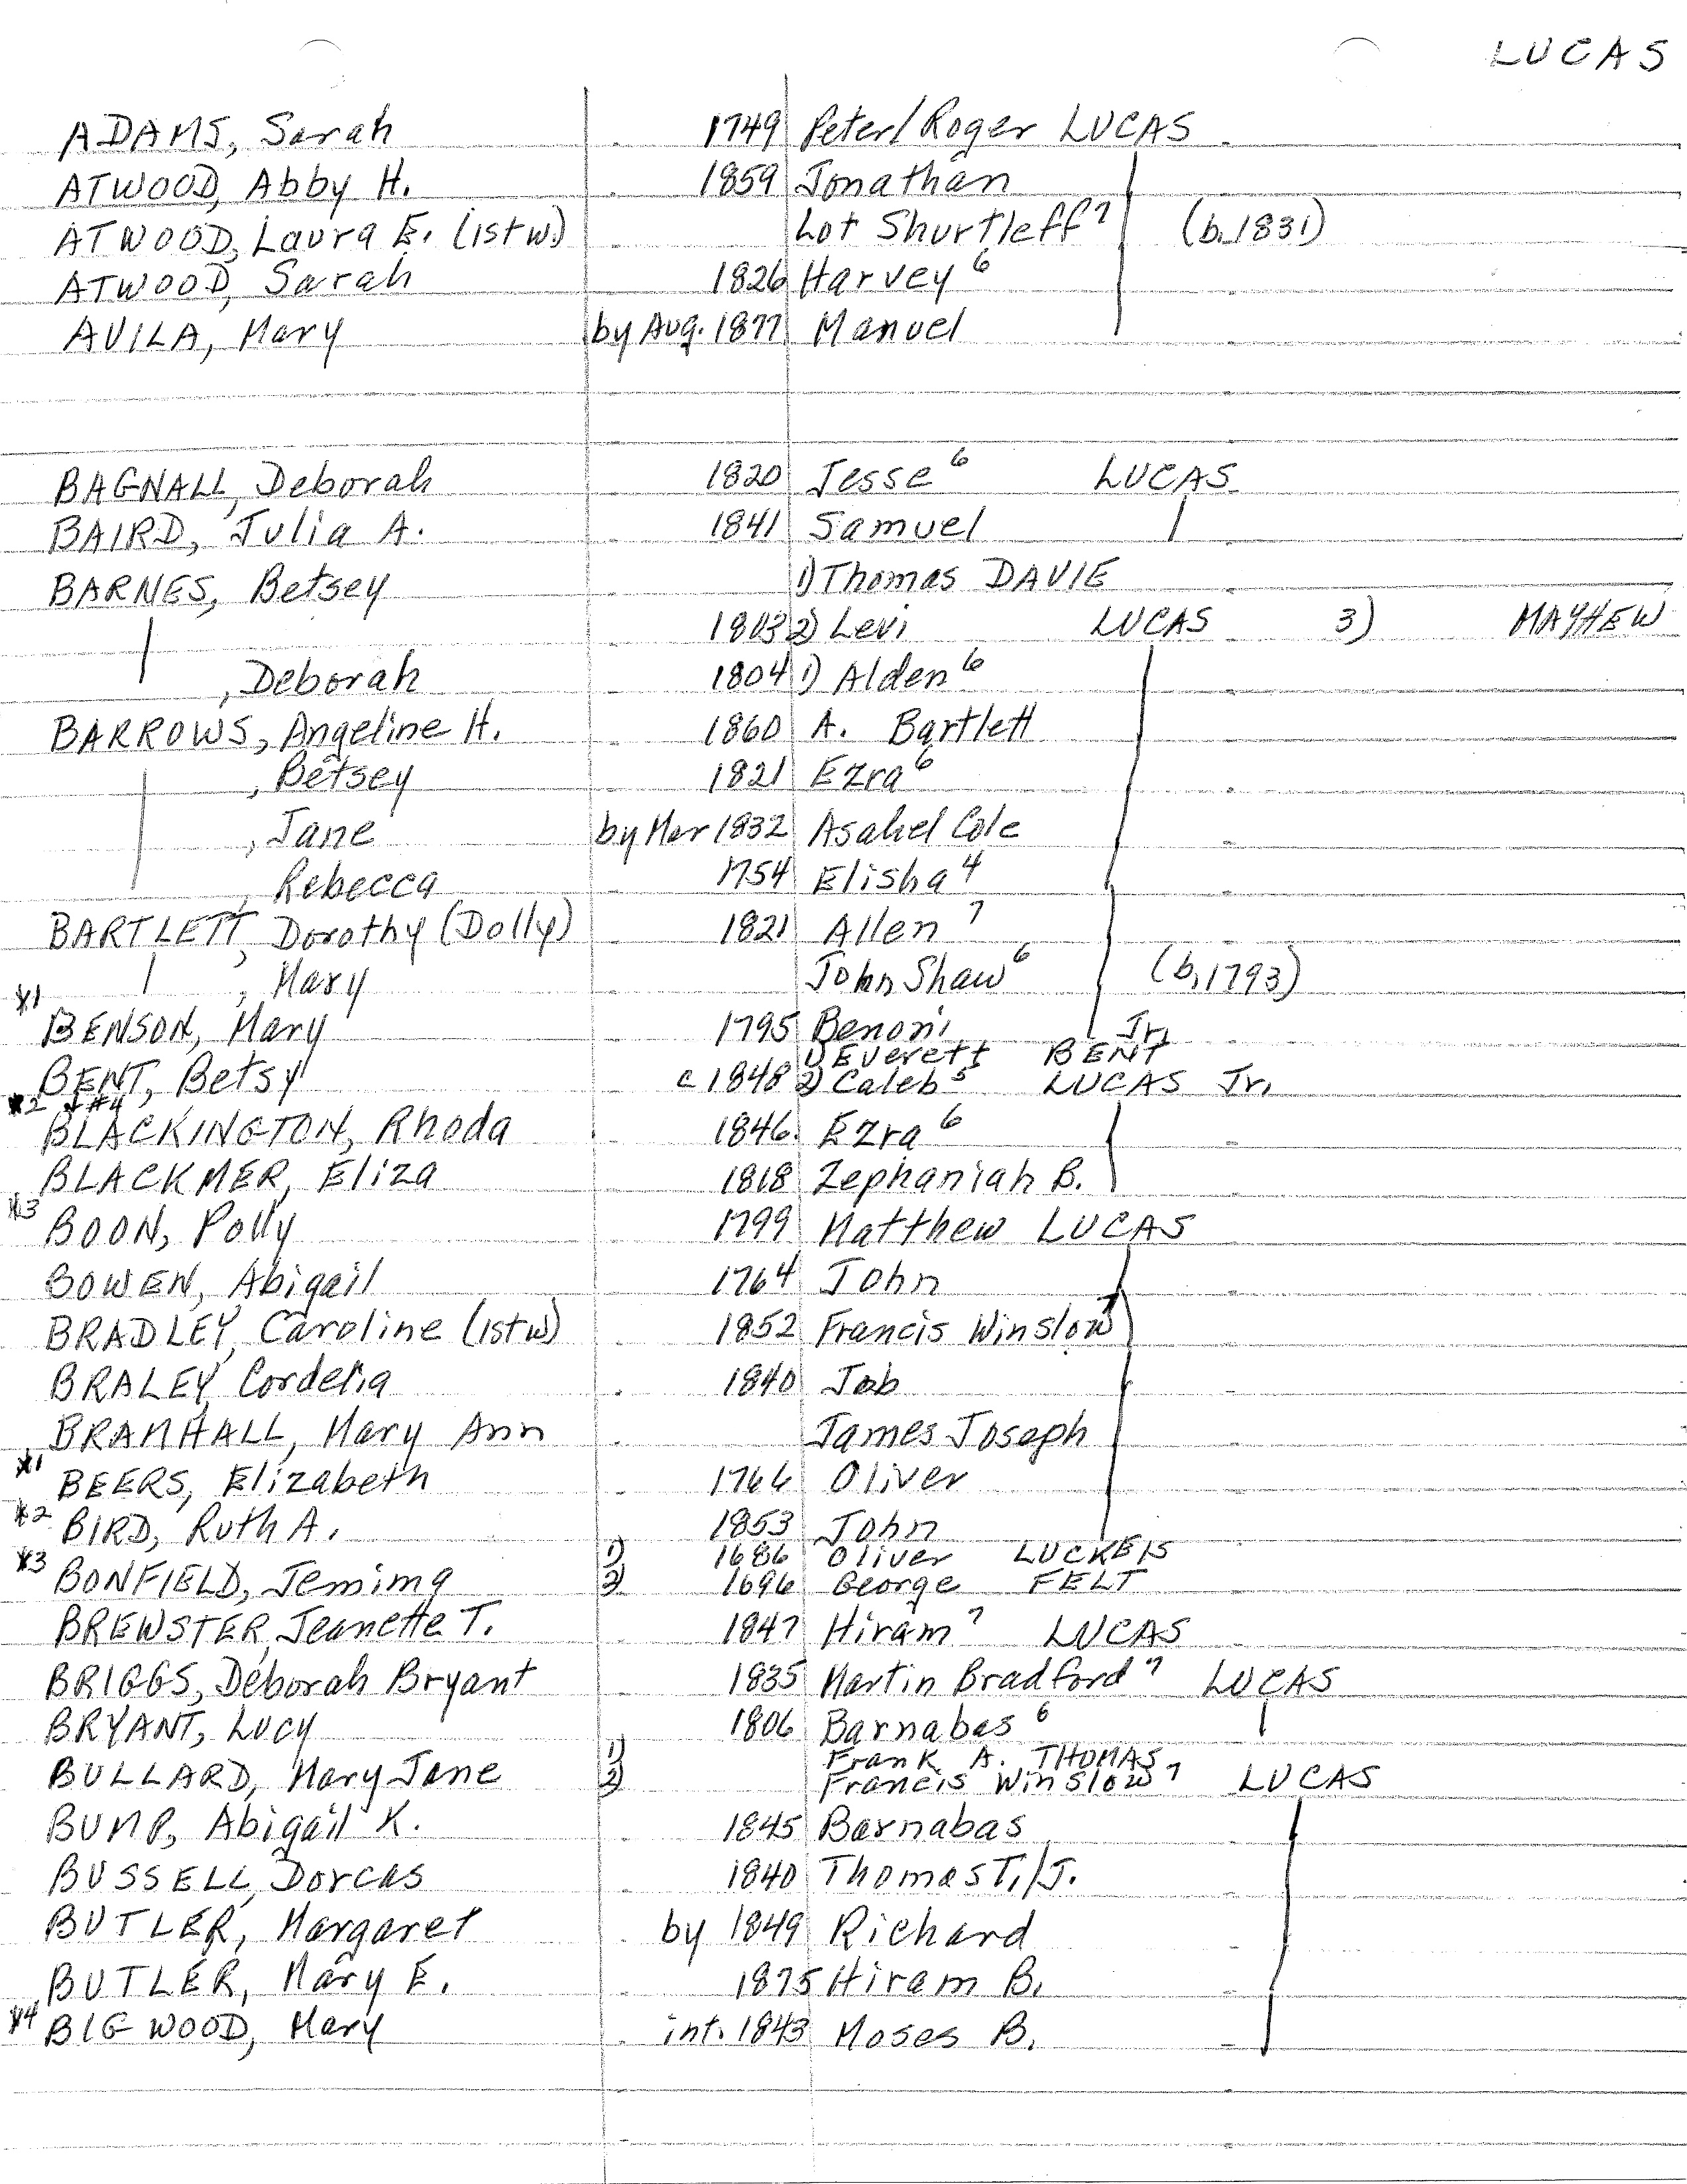 LUCAS
ADAMS, Sarah 1749 Peter/Roger LUCAS
ATWOOD, Abby H. 1859 Jonathan
ATWOOD, Laura E. (1st w.) Lot Shurtleff 7 (b. 1831)
ATWOOD, Sarah 1826 Harvey 6
AVILA, Mary by Aug. 1877 Manuel
BAGNALL, Deborah 1820 Jesse 6 LUCAS
BAIRD, Julia A. 1841 Samuel
BARNES, Betsey 1) Thomas DAVIE
1803 2) Levi LUCAS 3) MAYHEW
, Deborah 1804 1) Alden 6
BARROWS, Angeline H. 1860 A. Bartlett
, Betsey 1821 Ezra 6
, Jane by Mar 1832 Asahel Cole
, Rebecca 1754 Elisha 4
BARTLETT, Dorothy (Dolly) 1821 Allen 7
, Mary John Shaw 6 (b. 1793)
*1
BENSON, Mary 1795 Benoni Jr.
1) Everett BENT
BENT, Betsy c 1848 2) Caleb 5 LUCAS Jr.
*2 & #4
BLACKINGTON, Rhoda 1846 Ezra 6
BLACKMER, Eliza 1818 Zephaniah B.
*3
BOON, Polly 1799 Matthew LUCAS
BOWEN, Abigail 1764 John
BRADLEY, Caroline (1st w) 1852 Francis Winslow 7
BRALEY, Cordelia 1840 Job
BRAMHALL, Mary Ann James Joseph
*1 BEERS, Elizabeth 1766 Oliver
*2 BIRD, Ruth A. 1853 John
1) 1686 Oliver LUCKEIS
*3 BONFIELD, Jemima 2) 1696 George FELT
BREWSTER, Jeanette T. 1847 Hiram 7 LUCAS
BRIGGS, Deborah Bryant 1835 Martin Bradford 7 LUCAS
BRYANT, Lucy 1806 Barnabas 6
1) Frank A. THOMAS
BULLARD, Mary Jane 2) Francis Winslow 7 LUCAS
BUMP, Abigail K. 1845 Barnabas
BUSSELL, Dorcas 1840 Thomas T./J.
BUTLER, Margaret by 1849 Richard
BUTLER, Mary E. 1875 Hiram B.
*4 BIGWOOD, Mary int. 1843 Moses B.